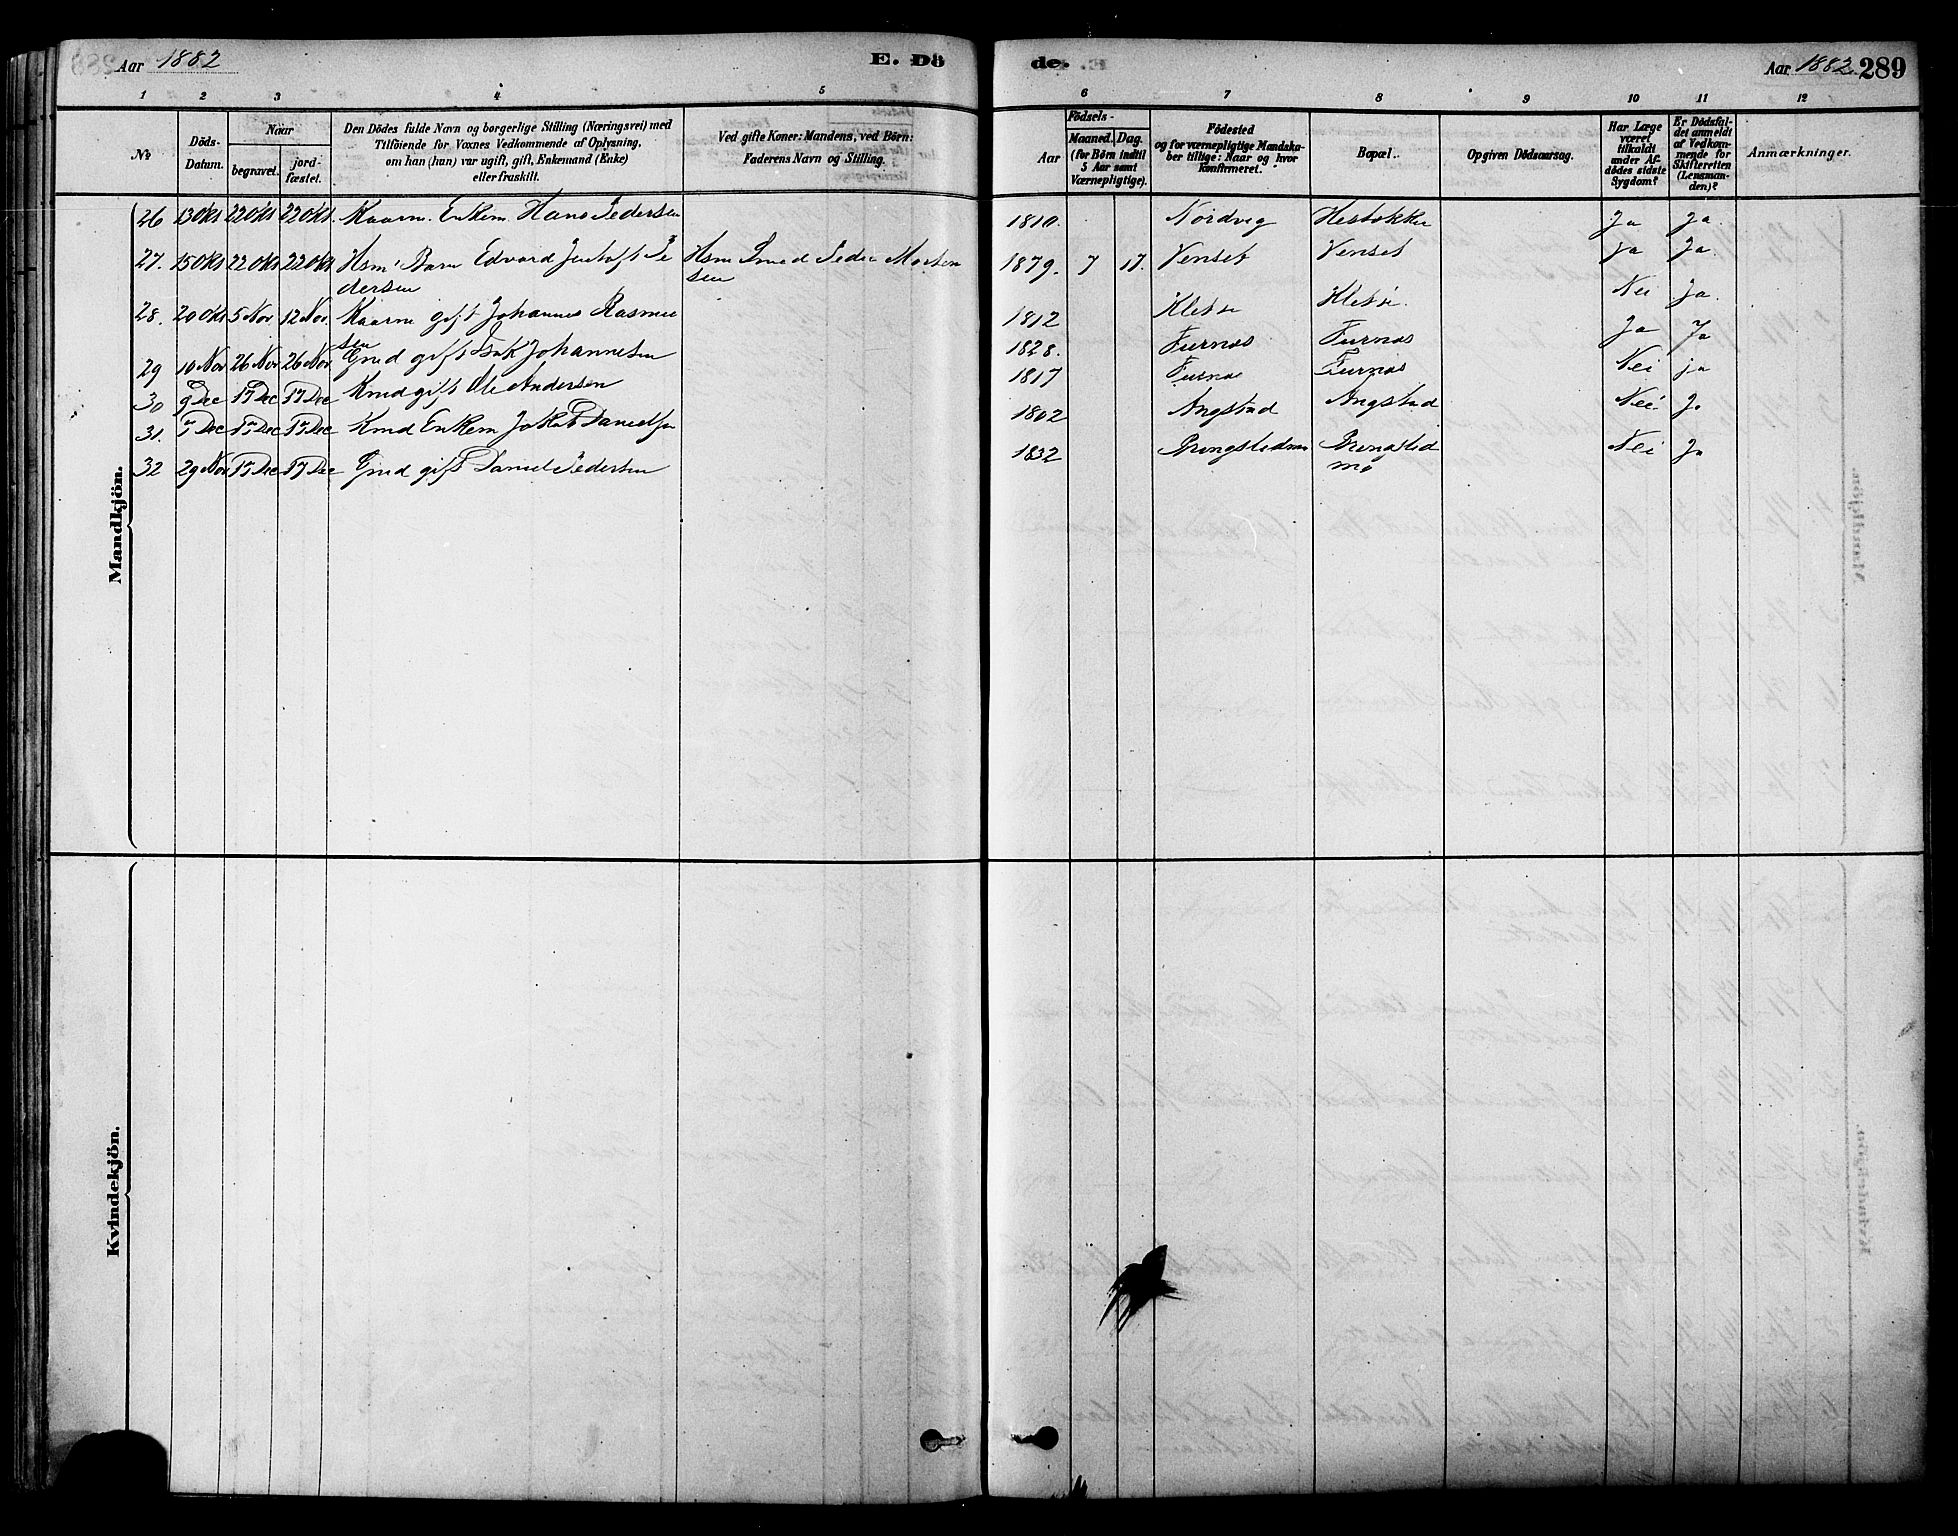 Aar 1882
E. Dö
de.
Aar 1882. 289
1 2 3 4 5 6 7 8 9 10 11 12
No
Döds-Datum.
Naar
begravet.
jordfæstet.
Den Dödes fulde Navn og borgerlige Stilling (Næringsvei) med
Tilföiende for Voxnes Vedkommende af Oplysning,
om han (hun) var ugift, gift, Enkemand (Enke)
eller fraskilt.
Ved gifte Koner: Mandens, ved Börn:
Faderens Navn og Stilling.
Födsels-
Aar
Maaned. Dag.
(for Börn indtil
5 Aar samt
Værnepligtige).
Födested
og for værnepligtige Mandska-
ber tillige: Naar og hvor
Konfirmeret.
Bopæl.
Opgiven Dödsaarsag.
Har Læge
været
tilkaldt
under Af-
dödes sidste
Sygdom?
Er Dödsfal-
det anmeldt
af Vedkom-
mende for
Skifteretten
(Lensman-
den)?
Anmærkninger.
Mandkjön.
26 13 Okt 22 Okt 22 Okt. Kaarm. Enkem Hans Pedersen 1810. Nordvig Hestokke Ja Ja
27. 15 Okt 22 Okt 22 Okt Hsm' Barn Edvard Jentoft Pe Hsm Smed Peder Morten 1879. 7 17. Venset Venset Ja Ja.
dersen sen
28. 20 Okt 5 Nov 12 Nov. Kaarm gift Johannes Rasmus 1812 Kletsi Kletsi. Nei Ja.
sen
29 10 Nov 26 Nov 26 Nov Gmd gift Isak Johannesen 1828. Furnes Furnes Ja Ja
30 9 Dec 17 Dec 17 Dec Kmd gift Ole Andersen 1817 Furnes Furnes Nei ja
31. 5 Dec 17 Dec 17 Dec Kmd Enkem Jakob Danielsen 1802 Angstad Angstad Nei Ja
32 29 Nov 17 Dec 17 Dec Gmd gift Daniel Pedersen 1832 Brengstedmo Brengsted Nei Ja
mo
Kvindekjön.